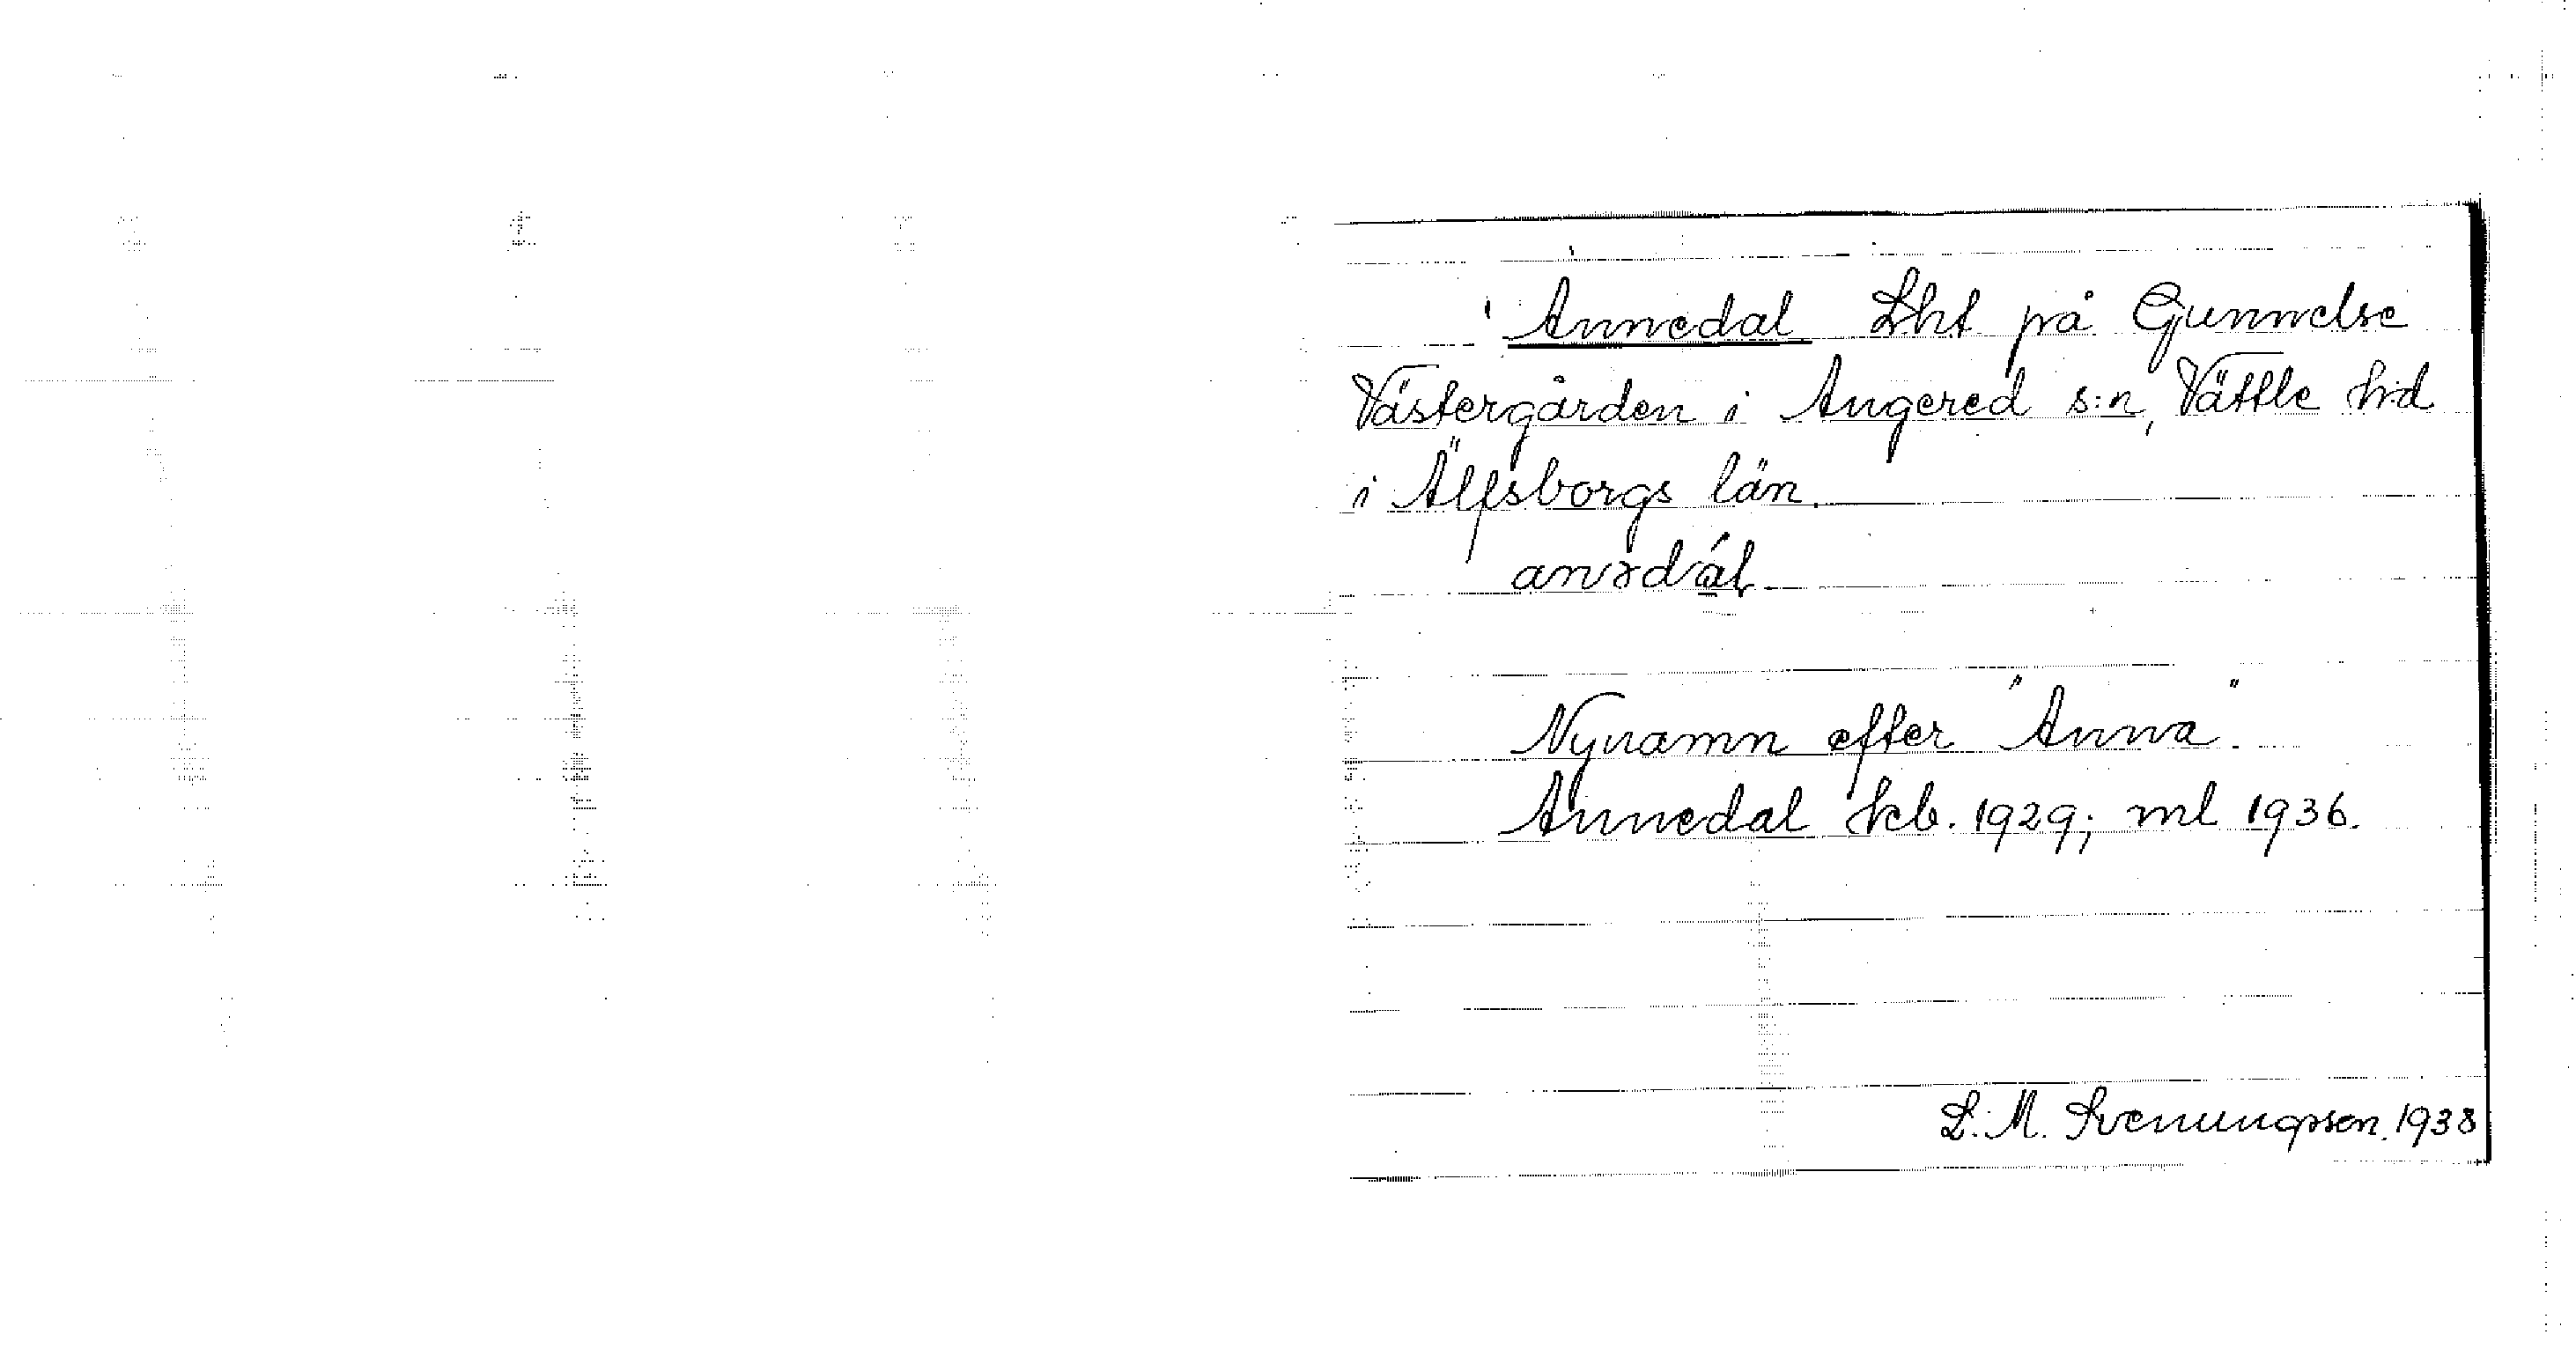 Annedal Lht på Gunnelse
Västergården i Angered s:n, Vättle hd
i Älfsborgs län.
Nynamn efter "Anna".
Annedal kb. 1929; ml 1936.
L. M. Svenungsson 1938